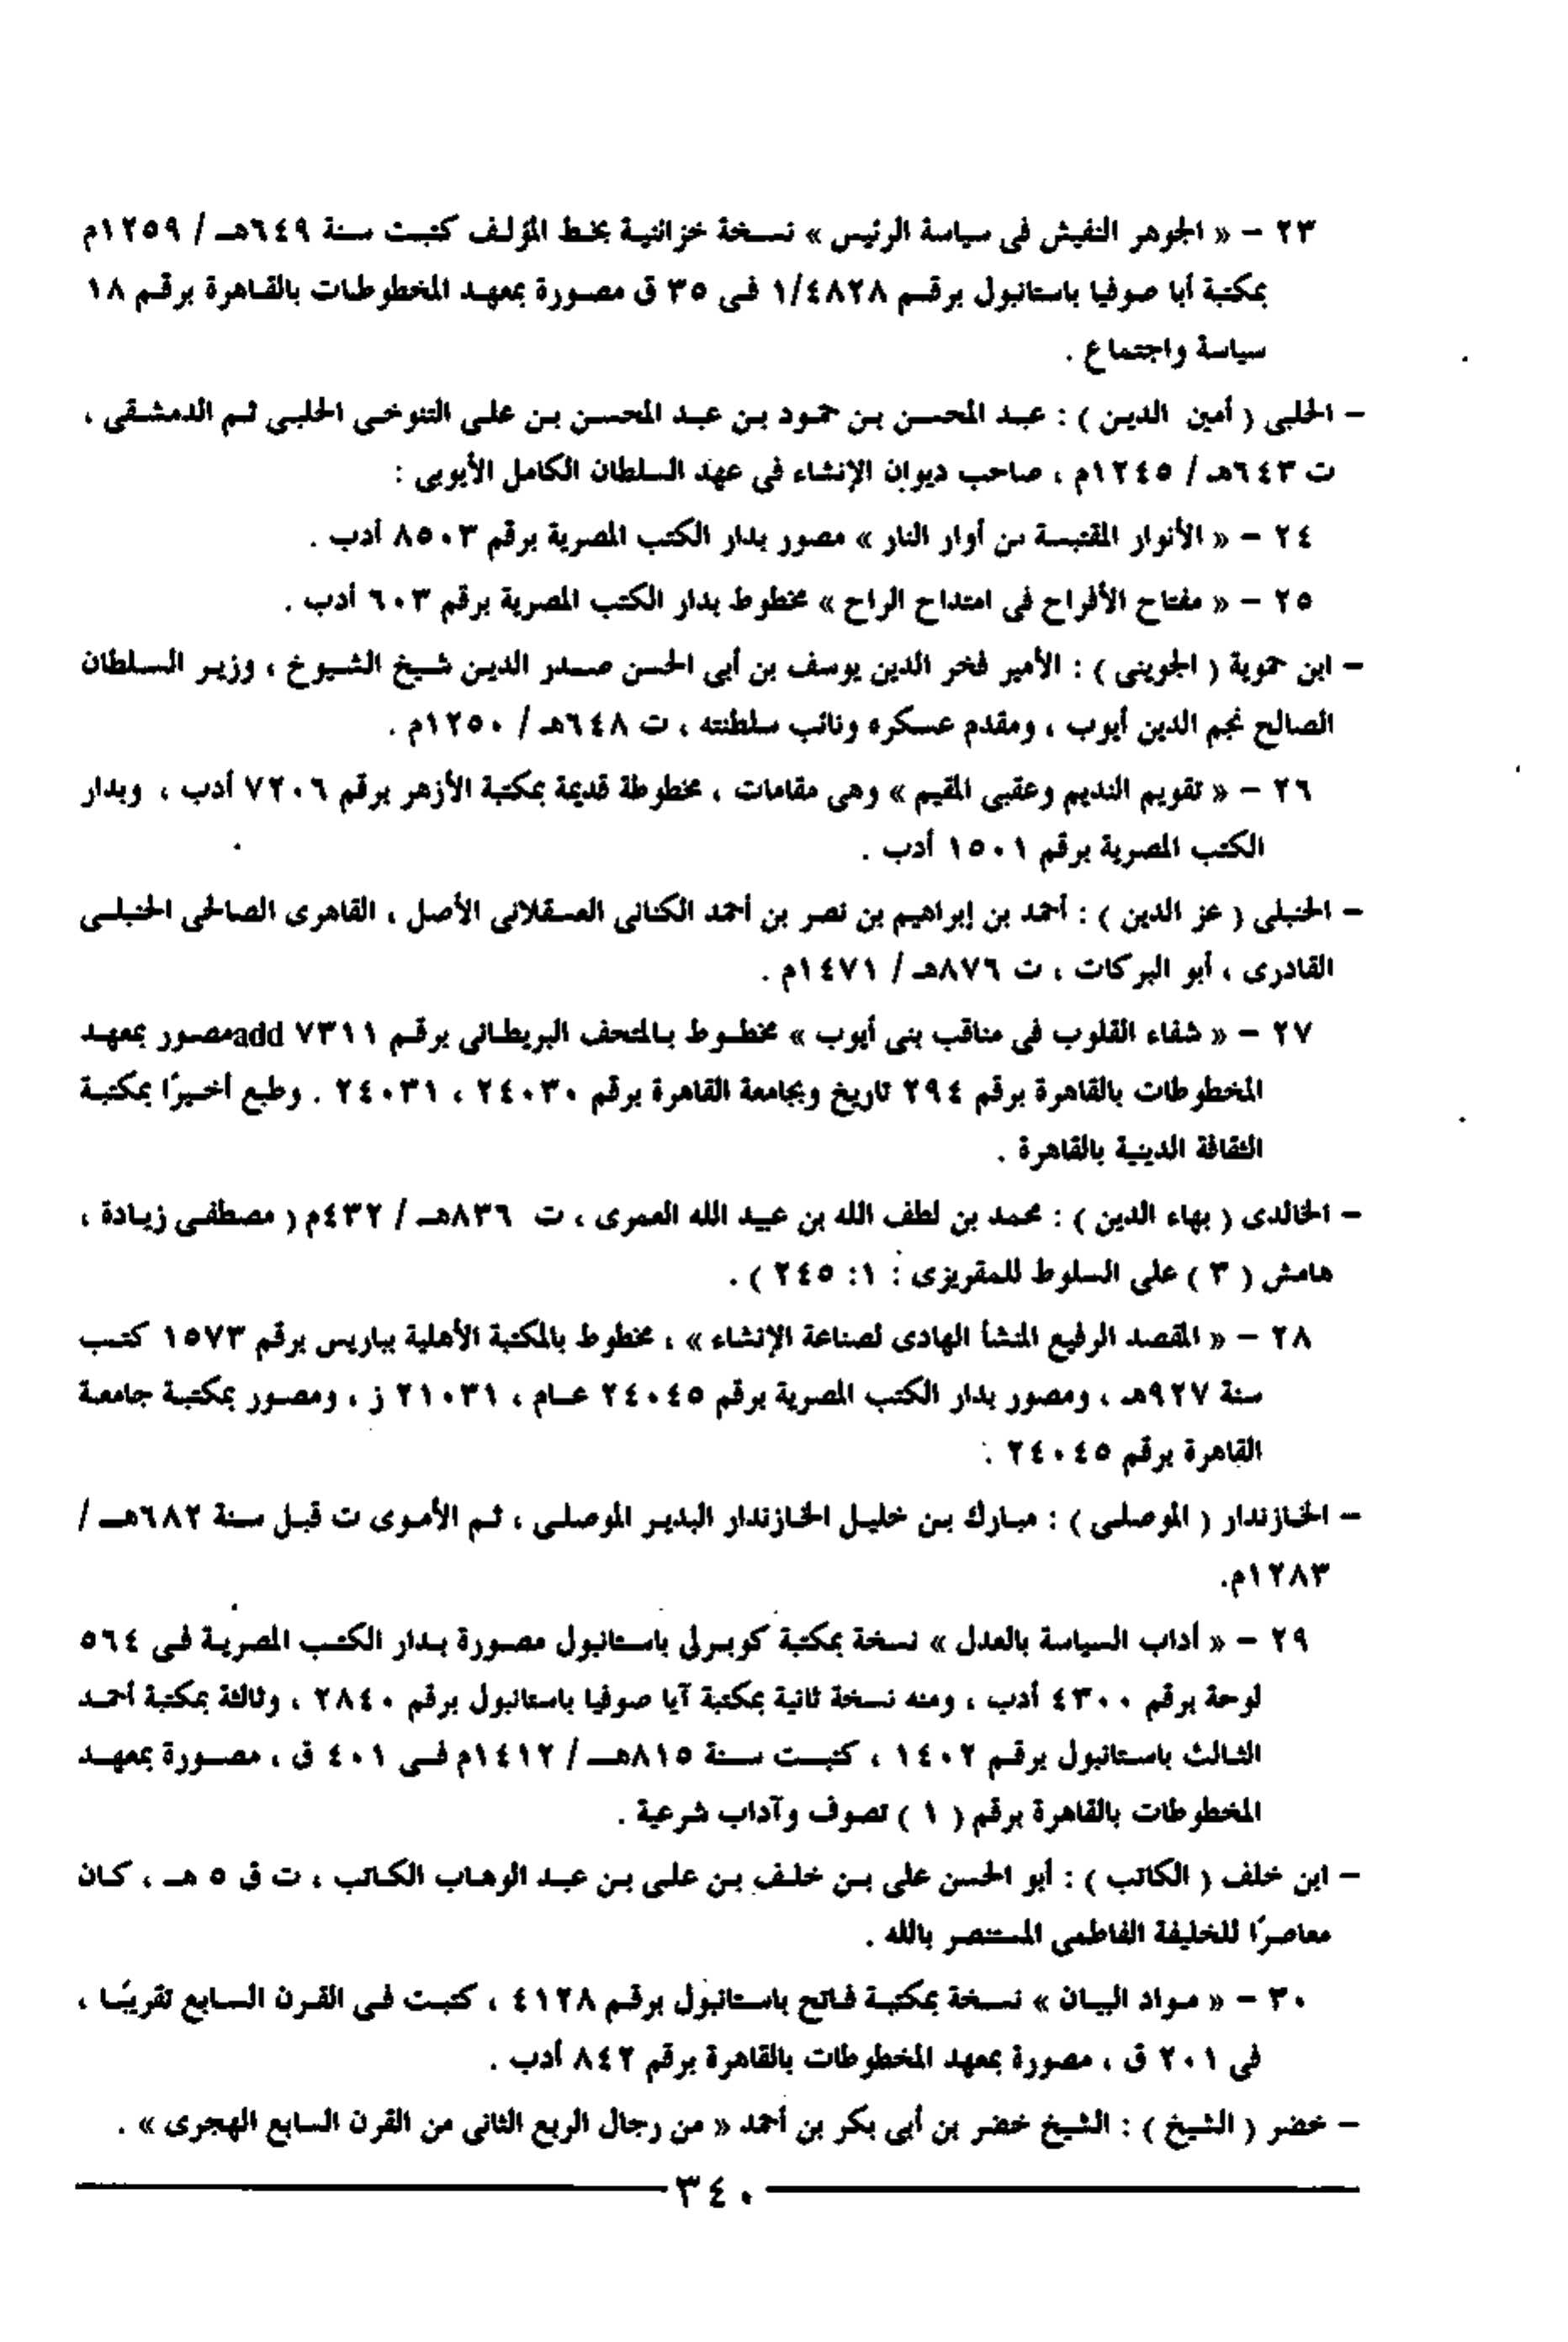 ٢٣ – « الجوهر النفيش فى سياسة الرئيس » نسخة خزائنية بخط المؤلف كتبت سنة ٦٤٩هـ / ١٢٥٩م
بمكتبة أيا صوفيا باستانبول برقم ١/٤٨٢٨ فى ٣٥ ق مصورة بمعهد المخطوطات بالقاهرة برقم ١٨
سياسة واجتماع .
– الحلبى ( أمين الدين ) : عبد المحسن بن حمود بن عبد المحسن بن على التنوخى الحلبى ثم الدمشقى ،
ت ٦٤٣هـ / ١٢٤٥م ، صاحب ديوان الإنشاء فى عهد السلطان الكامل الأيوبى :
٢٤ – « الأنوار المقتبسة من أوار النار » مصور بدار الكتب المصرية برقم ٨٥٠٣ أدب .
٢٥ – « مفتاح الأفراح فى امتداح الراح » مخطوط بدار الكتب المصرية برقم ٦٠٣ أدب .
– ابن حموية ( الجوينى ) : الأمير فخر الدين يوسف بن أبى الحسن صدر الدين شيخ الشيوخ ، وزير السلطان
الصالح نجم الدين أيوب ، ومقدم عسكره ونائب سلطنته ، ت ٦٤٨هـ / ١٢٥٠م .
٢٦ – « تقويم النديم وعقبى المقيم » وهى مقامات ، مخطوطة قديمة بمكتبة الأزهر برقم ٧٢٠٦ أدب ، وبدار
الكتب المصرية برقم ١٥٠١ أدب .
– الحنبلى ( عز الدين ) : أحمد بن إبراهيم بن نصر بن أحمد الكنانى العسقلانى الأصل ، القاهرى الصالحى الحنبلى
القادرى ، أبو البركات ، ت ٨٧٦هـ / ١٤٧١م .
٢٧ – « شفاء القلوب فى مناقب بنى أيوب » مخطوط بالمتحف البريطانى برقم ٧٣١١ addمصور بمعهد
المخطوطات بالقاهرة برقم ٢٩٤ تاريخ وبجامعة القاهرة برقم ٢٤٠٣٠ ، ٢٤٠٣١ . وطبع أخيرًا بمكتبة
الثقافة الدينية بالقاهرة .
– الخالدى ( بهاء الدين ) : محمد بن لطف الله بن عبيد الله العمرى ، ت ٨٣٦هـ / ٤٣٢م ( مصطفى زيادة ،
هامش ( ٣ ) على السلوط للمقريزى : ١: ٢٤٥ ) .
٢٨ – « المقصد الرفيع المنشأ الهادى لصناعة الإنشاء » ، مخطوط بالمكتبة الأهلية بباريس برقم ١٥٧٣ كتب
سنة ٩٢٧هـ ، ومصور بدار الكتب المصرية برقم ٢٤٠٤٥ عام ، ٢١٠٣١ ز ، ومصور بمكتبة جامعة
القاهرة برقم ٢٤٠٤٥ .
– الخازندار ( الموصلى ) : مبارك بن خليل الخازندار البدير الموصلى ، ثم الأموى ت قبل سنة ٦٨٢هـ /
١٢٨٣م.
٢٩ – « أداب السياسة بالعدل » نسخة بمكتبة كوبرلى باستانبول مصورة بدار الكتب المصرية فى ٥٦٤
لوحة برقم ٤٣٠٠ أدب ، ومنه نسخة ثانية بمكتبة آيا صوفيا باستانبول برقم ٢٨٤٠ ، وثالثة بمكتبة أحمد
الثالث باستانبول برقم ١٤٠٢ ، كتبت سنة ٨١٥هـ / ١٤١٢م فى ٤٠١ ق ، مصورة بمعهد
المخطوطات بالقاهرة برقم ( ١ ) تصوف وآداب شرعية .
– ابن خلف ( الكاتب ) : أبو الحسن على بن خلف بن على بن عبد الوهاب الكاتب ، ت ق ٥ هـ ، كان
معاصرًا للخليفة الفاطمى المستنصر بالله .
٣٠ – « مواد البيان » نسخة بمكتبة فاتح باستانبول برقم ٤١٢٨ ، كتبت فى القرن السابع تقريبًا ،
فى ٢٠١ ق ، مصورة بمعهد المخطوطات بالقاهرة برقم ٨٤٢ أدب .
– خضر ( الشيخ ) : الشيخ خضر بن أبى بكر بن أحمد « من رجال الربع الثانى من القرن السابع الهجرى » .
٣٤٠